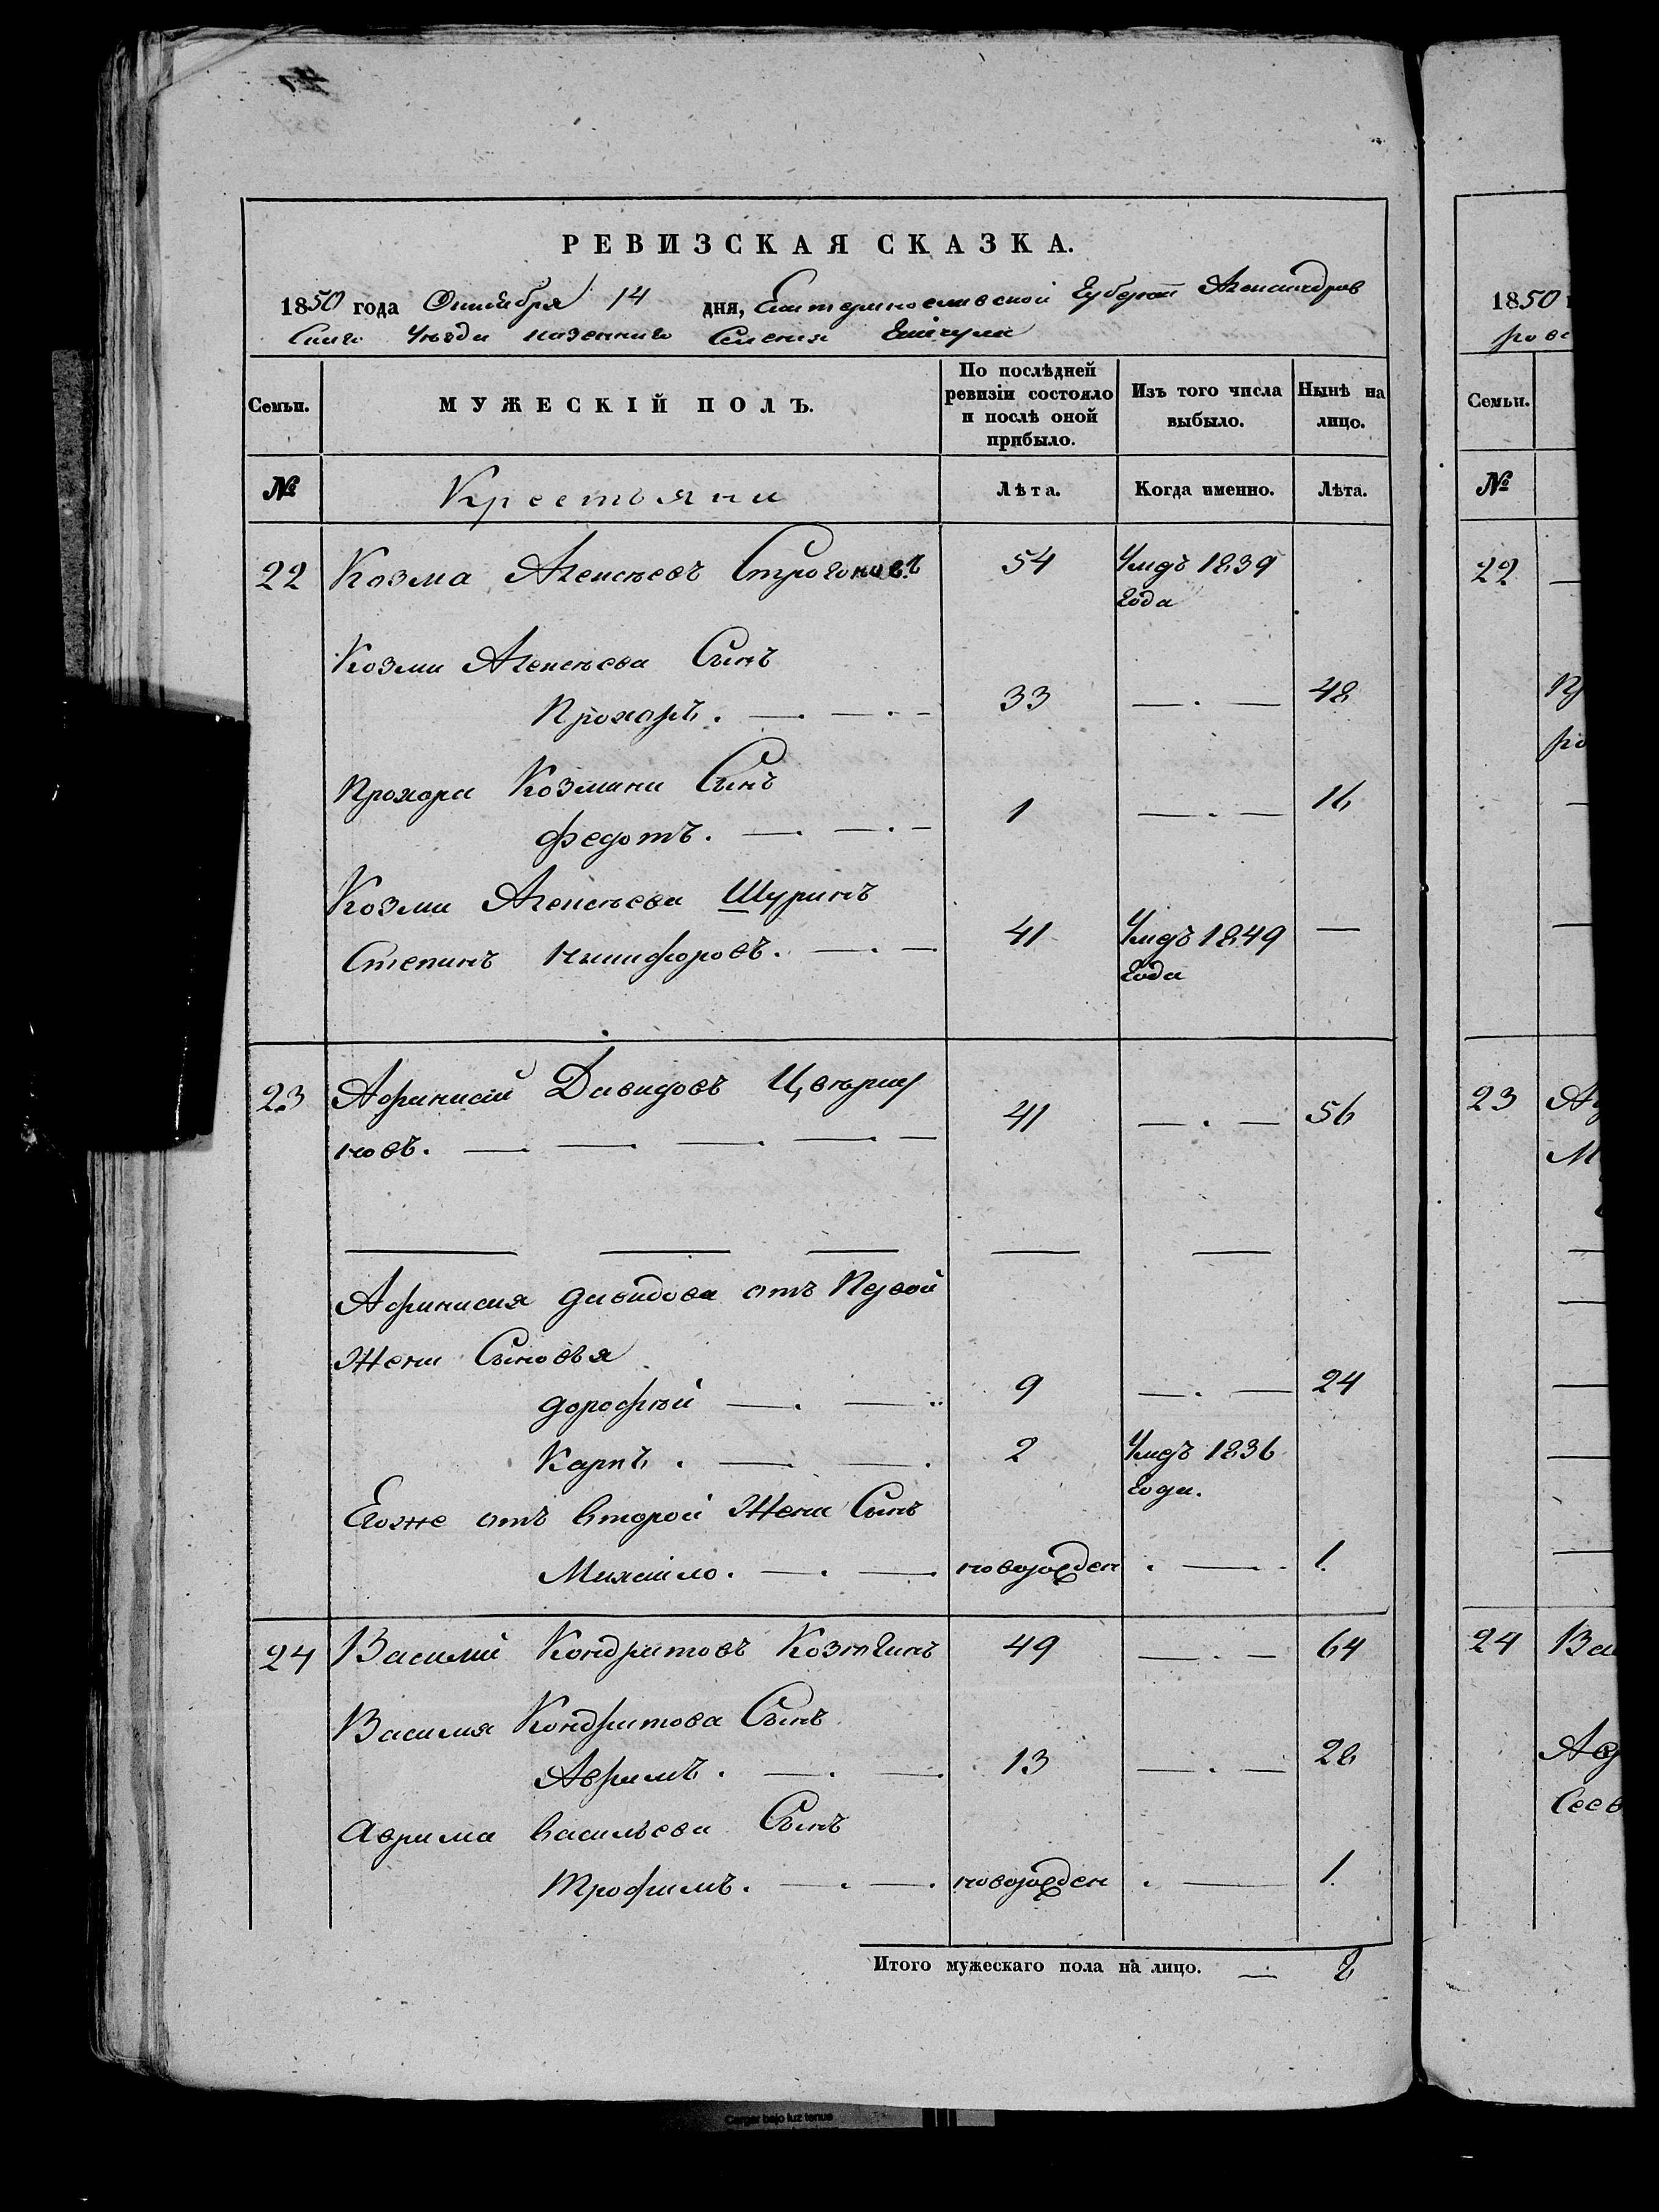 РЕВИЗСКАЯ СКАЗКА.
1850 года Октября 14 дня, Екатеринославской Губерніи Александров
скаго Уѣзда казеннаго Селенія
Семьи.
МУЖЕСКІЙ ПОЛЪ.
По послѣдней ревизіи состояло и послѣ оной прибыло.
Изъ того числа выбыло.
Нынѣ на лицо.
№
Крестьяни
Лѣта.
Когда именно.
Лѣта.
22 Козма Алексѣевъ Строгоновъ 54 Умдъ 1839
года
Козми Алексѣева Сынъ
Прохоръ. 33 48
Прохора Козмина Сынъ
Федотъ. 1 16
Козми Алексѣева Шуринъ
Степанъ Никифоровъ. 41 Умдъ 1849
года
23 Афанасій Давидовъ Цвѣрку
новъ. 41 56
Афанасия давидова отъ Первой
Жени Сыновья
дорофѣй 9 24
Карпъ. 2 Умдъ 1836
года.
Егоже отъ второй Жени Сынъ
Михайло. новорожден 1.
24 Василій Кондратовъ 49 64
Василия Кондратова Сынъ
Аврамъ. 13 28
Аврама васильева Сынъ
Трофимъ. новорожден 1.
Итого мужескаго пола на лицо. 8
1850
рове
Семьи.
№
22
23
24 Ва
Carger bajo luz tenue